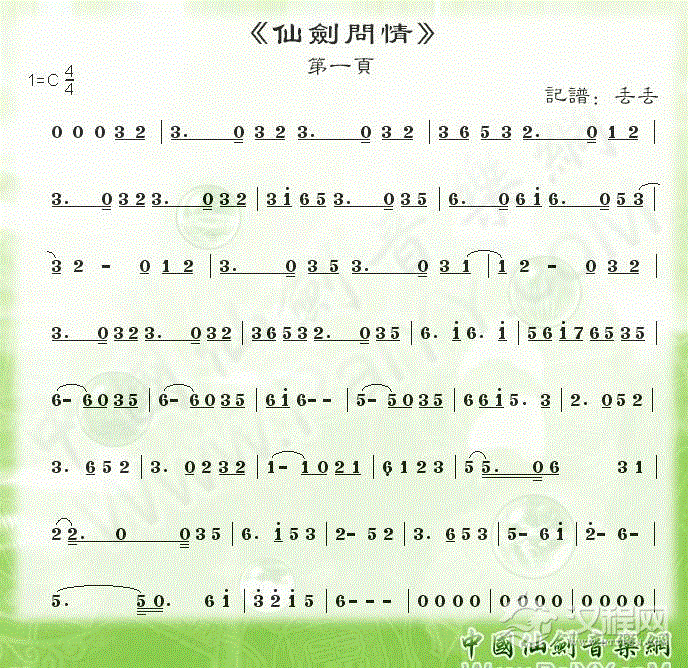 《仙劍問情》
第一頁
1=C 4/4
記譜：丢丢
0 0 0 3 2 | 3. 0 3 2 3. 0 3 2 | 3 6 5 3 2. 0 1 2 |
3. 0 3 2 3. 0 3 2 | 3 i 6 5 3. 0 3 5 | 6. 0 6 i 6. 0 5 3
3 2 - 0 1 2 | 3. 0 3 5 3. 0 3 1 | 1 2 - 0 3 2 |
3. 0 3 2 3. 0 3 2 | 3 6 5 3 2. 0 3 5 | 6. i 6. i | 5 6 i 7 6 5 3 5 |
6 - 6 0 3 5 | 6 - 6 0 3 5 | 6 i 6 - - | 5 - 5 0 3 5 | 6 6 i 5. 3 | 2. 0 5 2 |
3. 6 5 2 | 3. 0 2 3 2 | 1 - 1 0 2 1 | 6 1 2 3 | 5 5. 0 6 3 1 |
2 2. 0 0 3 5 | 6. i 5 3 | 2 - 5 2 | 3. 6 5 3 | 5 - 6 i | 2 - 6 - |
5. 5 0. 6 i | 3 2 i 5 | 6 - - - | 0 0 0 0 | 0 0 0 0 | 0 0 0 0 |
汉程网
中國仙劍音樂網